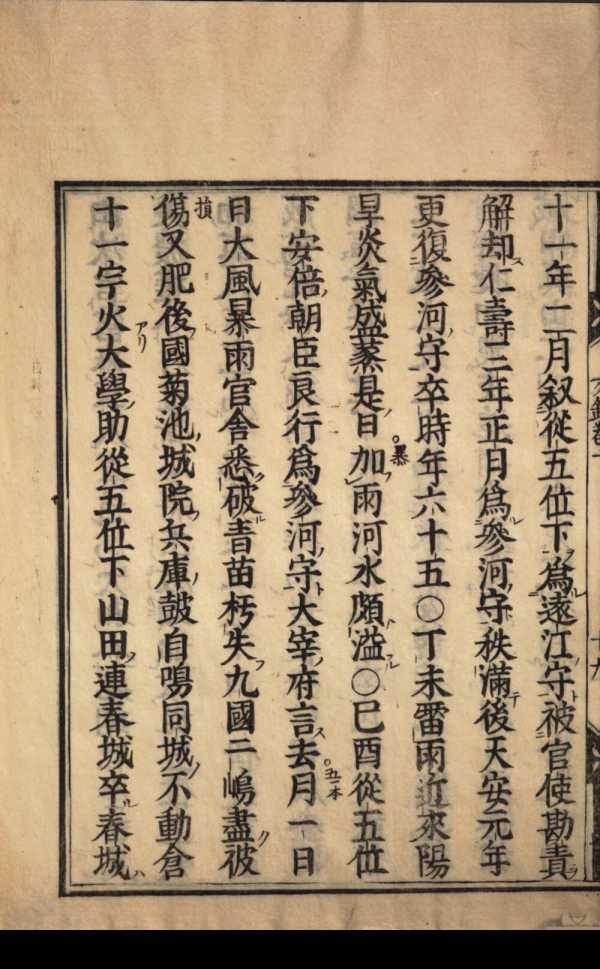 十一年二月叙從五位下爲遠江守被官使勘責
解却仁壽三年正月爲參河守秩滿後天安元年
更復參河守卒時年六十五○丁未雷雨近來陽
旱炎氣盛蒸是日加雨河水頗溢○己酉從五位
下安倍朝臣良行爲參河守大宰府言去月一日
日大風暴雨官舍悉破青苗朽失九國二嶋盡被
傷又肥後國菊池城院兵庫鼓自鳴同城不動倉
十一宇火大學助從五位下山田連春城卒春城